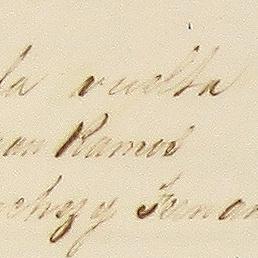 la vuelta
uan Ramos
nchez y Fernan